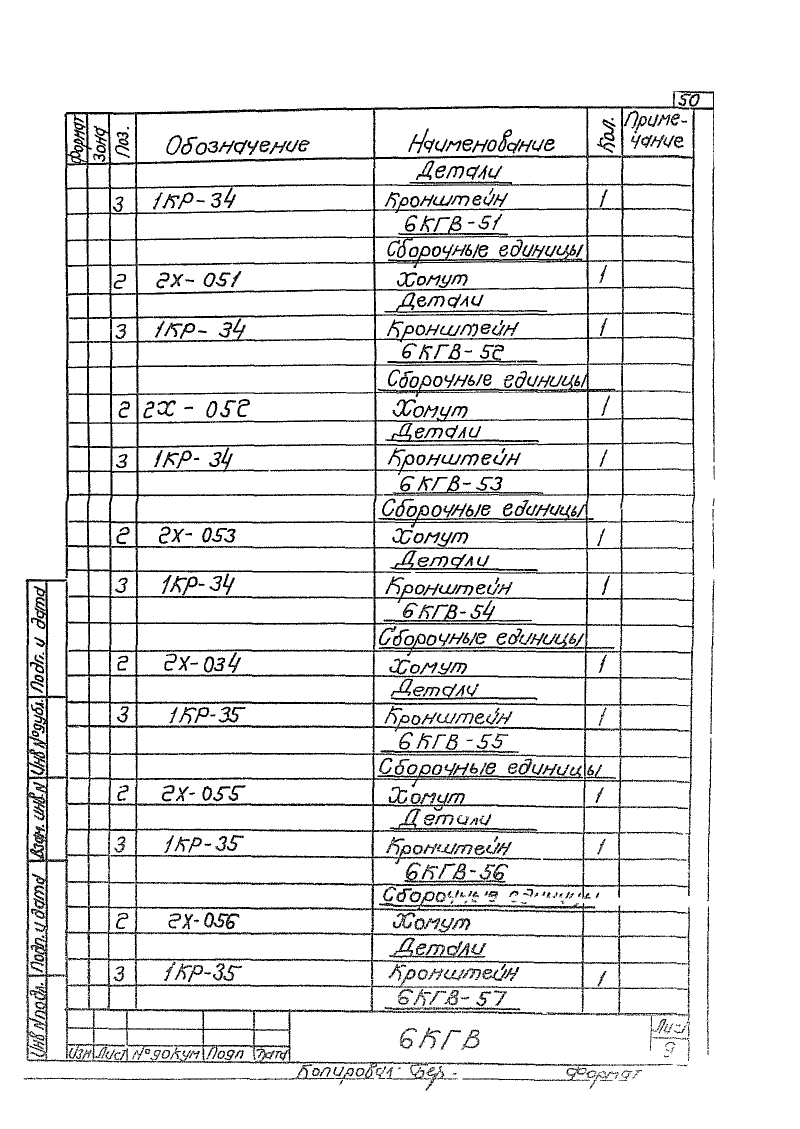 50
Формат Зона Поз. Обозначение Наименование Кол. Примечание
Детали
3 1КР-34 Кронштейн 1
6КГВ-51
Сборочные единицы
2 2Х-051 Хомут 1
Детали
3 1КР-34 Кронштейн 1
6КГВ-52
Сборочные единицы
2 2Х-052 Хомут 1
Детали
3 1КР-34 Кронштейн 1
6КГВ-53
Сборочные единицы
2 2Х-053 Хомут 1
Детали
3 1КР-34 Кронштейн 1
6КГВ-54
Сборочные единицы
2 2Х-034 Хомут 1
Детали
3 1КР-35 Кронштейн 1
6КГВ-55
Сборочные единицы
2 2Х-055 Хомут 1
Детали
3 1КР-35 Кронштейн 1
6КГВ-56
Сборочные единицы
2 2Х-056 Хомут
Детали
3 1КР-35 Кронштейн 1
6КГВ-57
Инв N подл. Подп. и дата Взам. инв. N Инв N° дубл. Подп. и дата
Изм Лист N° докум Подп Дата
6КГВ
Лист
9
Копировал: Формат